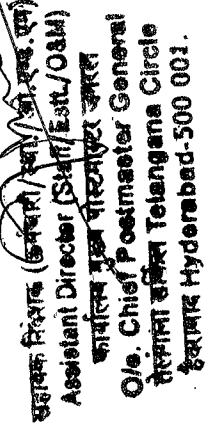 सहायक निदेशक
Assistant Director (Staff/Estt./O&M)
कार्यालय मुख्य पोस्टमास्टर जनरल
O/o. Chief Postmaster General
तेलंगाना सर्किल Telangana Circle
हैदराबाद Hyderabad-500 001.